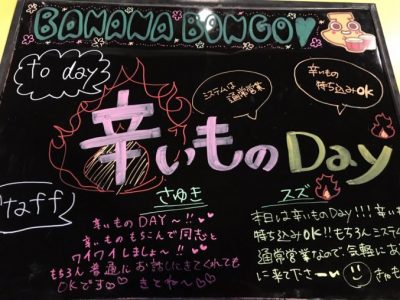 BANANA BONGO
to day
システムは
通常営業
辛いもの
持ち込みOK
辛いものDay
staff
さゆき
スズ
辛いものDAY〜!!
辛いもの もちこんで同志と
ワイワイしましょ〜!!
もちろん普通にお話しにきてくれても
OKです
きてね〜
本日は辛いものDay!!!
持ち込みOK!!もちろんシステム
通常営業なので、気軽に
に来て下さーい